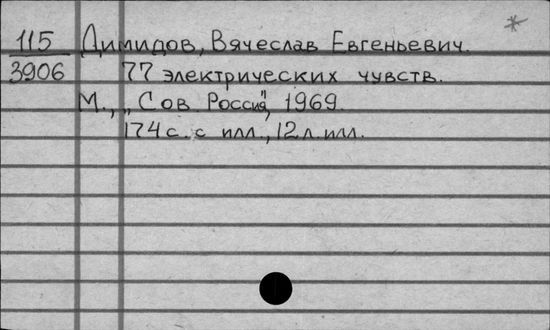 115 Димидов, Вячеслав Евгеньевич.
3906 77 электрических чувств.
М., „Сов. Россия", 1969.
174 с. с илл., 12 л. илл.